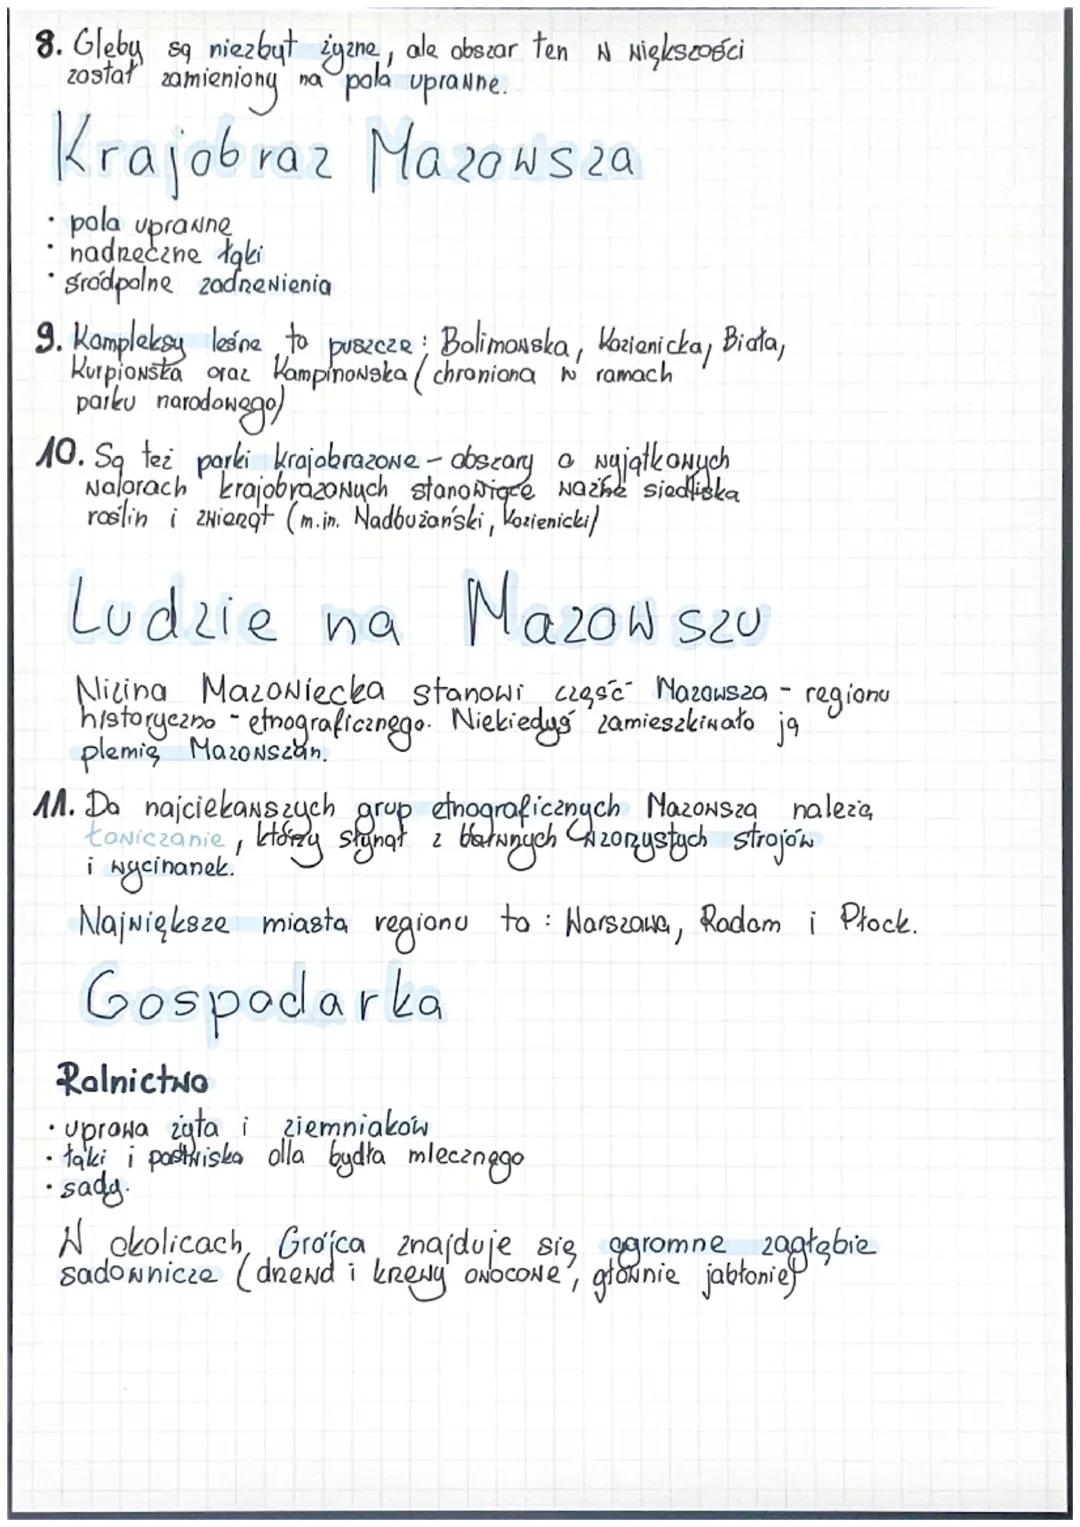 8. Gleby są niezbyt żyzne, ale obszar ten w większości
został zamieniony na pola uprawne.
Krajobraz Mazowsza
· pola uprawne
· nadrzeczne łąki
· śródpolne zadrzewienia
9. Kompleksy leśne to puszcze: Bolimowska, Kozienicka, Biała,
Kurpiowska oraz Kampinowska (chroniona w ramach
parku narodowego)
10. Są też parki krajobrazowe - obszary o wyjątkowych
walorach krajobrazowych stanowiące ważne siedliska
roślin i zwierząt (m.in. Nadbużański, Kozienicki)
Ludzie na Mazowszu
Nizina Mazowiecka stanowi część Mazowsza - regionu
historyczno - etnograficznego. Niekiedyś zamieszkiwało ją
plemię Mazowszan.
11. Do najciekawszych grup etnograficznych Mazowsza należą
Łowiczanie, którzy słynął z barwnych wzorzystych strojów
i wycinanek.
Największe miasta regionu to: Warszawa, Radom i Płock.
Gospodarka
Rolnictwo
· uprawa żyta i ziemniaków
· łąki i pastwiska dla bydła mlecznego
· sady.
W okolicach Grójca znajduje się ogromne zagłębie
sadownicze (drzewa i krzewy owocowe, głównie jabłonie)